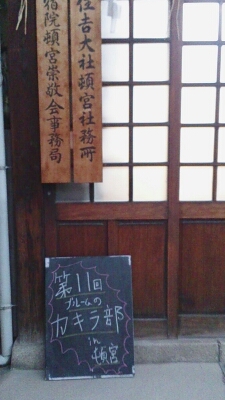 住吉大社頓宮社務所
宿院頓宮崇敬会事務局
第11回
ブルームの
カキラ部
in
頓宮